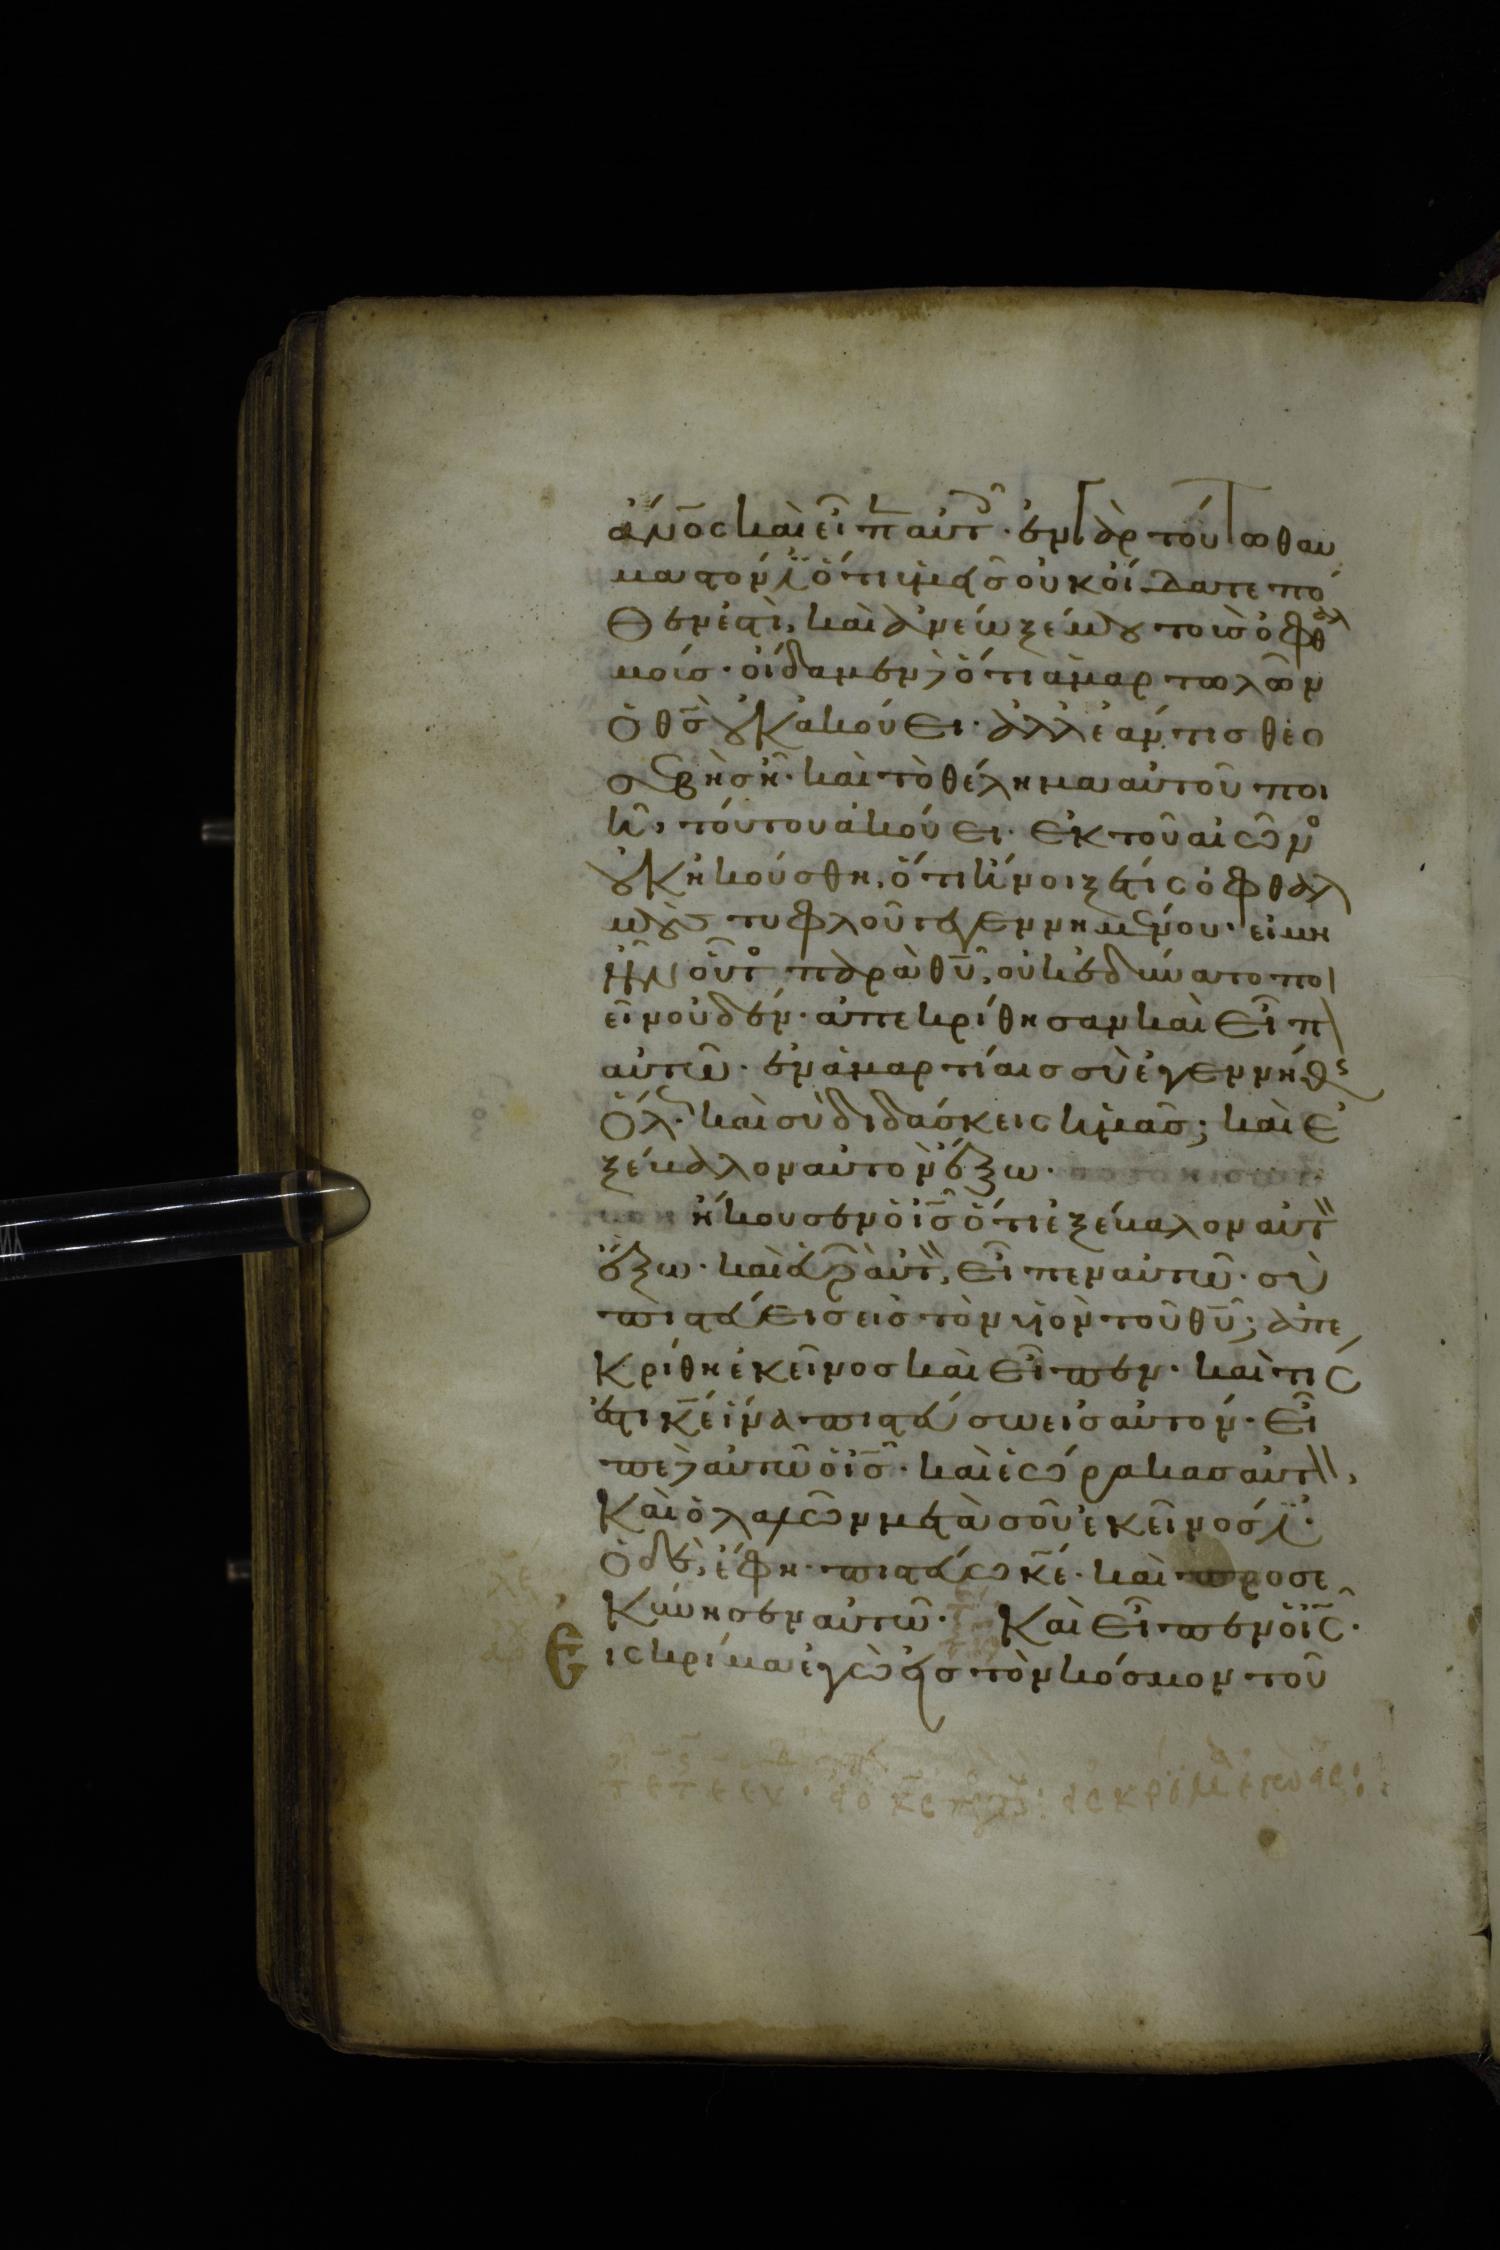 ἄνο̅ς καὶ εἶπ̅ αὐτ̅· ἐν γὰρ τούτω θαυ
μαστόν ἐστὶ ὅτι ὑμεῖς οὐκ οἴδατε πό
θεν ἐστὶ, καὶ ἀνέωξέ μου τοὺς ὀφθαλ
μούς· οἴδαμεν δὲ ὅτι ἁμαρτωλῶν
ὁ θ̅ς̅ οὐκ ἀκούει· ἀλλ' ἐάν τις θεο
σεβὴς ἦ· καὶ τὸ θέλημα αὐτοῦ ποι
ῆ, τούτου ἀκούει· ἐκ τοῦ αἰῶνο
οὐκ ἠκούσθη, ὅτι ἤνοιξέ τίς ὀφθαλ
μοὺς τυφλοῦ γεγεννημένου· εἰ μὴ
ἦν οὗτο παρὰ θ̅υ̅, οὐκ ἐδύνατο ποι
εῖν οὐδέν· ἀπεκρίθησαν καὶ εἶπ
αὐτῶ· ἐν ἁμαρτίαις σὺ ἐγεννήθς
ὅλ· καὶ σὺ διδάσκεις ἡμᾶς; καὶ ἐ
ξέβαλον αὐτὸν ἔξω·
ἤκουσεν ὁ ι̅ς̅ ὅτι ἐξέβαλον αὐτ
ἔξω· καὶ εὑρὼν αὐτ, εἶπεν αὐτῶ· σὺ
πιστεύεις εἰς τὸν υἱὸν τοῦ θ̅υ̅; ἀπε
κρίθη ἐκεῖνος καὶ εἶπεν· καὶ τίς
ἐστι κ̅ε̅ ἵνα πιστεύσω εἰς αὐτόν· εἶ
πε δὲ αὐτῶ ὁ ι̅ς̅· καὶ ἑώρακας αὐτ,
καὶ ὁ λαλῶν μετὰ σοῦ ἐκεῖνός ἐστι·
ὁ δὲ, ἔφη· πιστεύω κ̅ε̅· καὶ προσε
κύνησεν αὐτῶ· καὶ εἶπεν ὁ ι̅ς̅·
εἰς κρίμα ἐγὼ εἰς τὸν κόσμον τοῦ